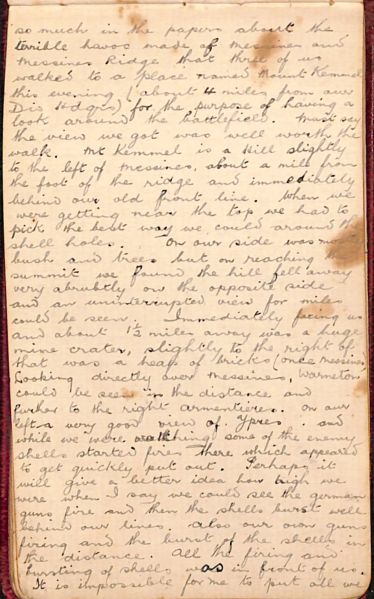 so much in the papers about the
terrible havoc made of messines and
messines Ridge that three of us
walked to a place named Mount Kemmel
this evening (about 4 miles from our
Dis Hdqrs) for the purpose of having a
look around the battlefield. Must say
the view we got was well worth the
walk. Mt Kemmel is a Hill slightly
to the left of messines, about a mile from
the foot of the ridge and immediately
behind our old front line. When we
were getting near the top we had to
pick the best way we could around the
shell holes. On our side was mostly
bush and trees but on reaching the
summit we found the hill fell away
very abrubtly on the opposite side
and an uninterrupted view for miles
could be seen. Immediately facing us
and about 1½ miles away was a huge
mine crater, slightly to the right of
that was a heap of bricks (once messines
Looking directly over messines, Warneton
could be seen in the distance and
further to the right armentieres. On our
left a very good view of Ypres. and
while we were watching some of the enemy
shells started fires there which appeared
to get quickly put out. Perhaps it
will give a better idea how high we
were when I say we could see the german
guns fire and then the shells burst well
behind our lines. Also our own guns
firing and the burst of the shells in
the distance. All the firing and
bursting of shells was in front of us.
It is impossible for me to put all we